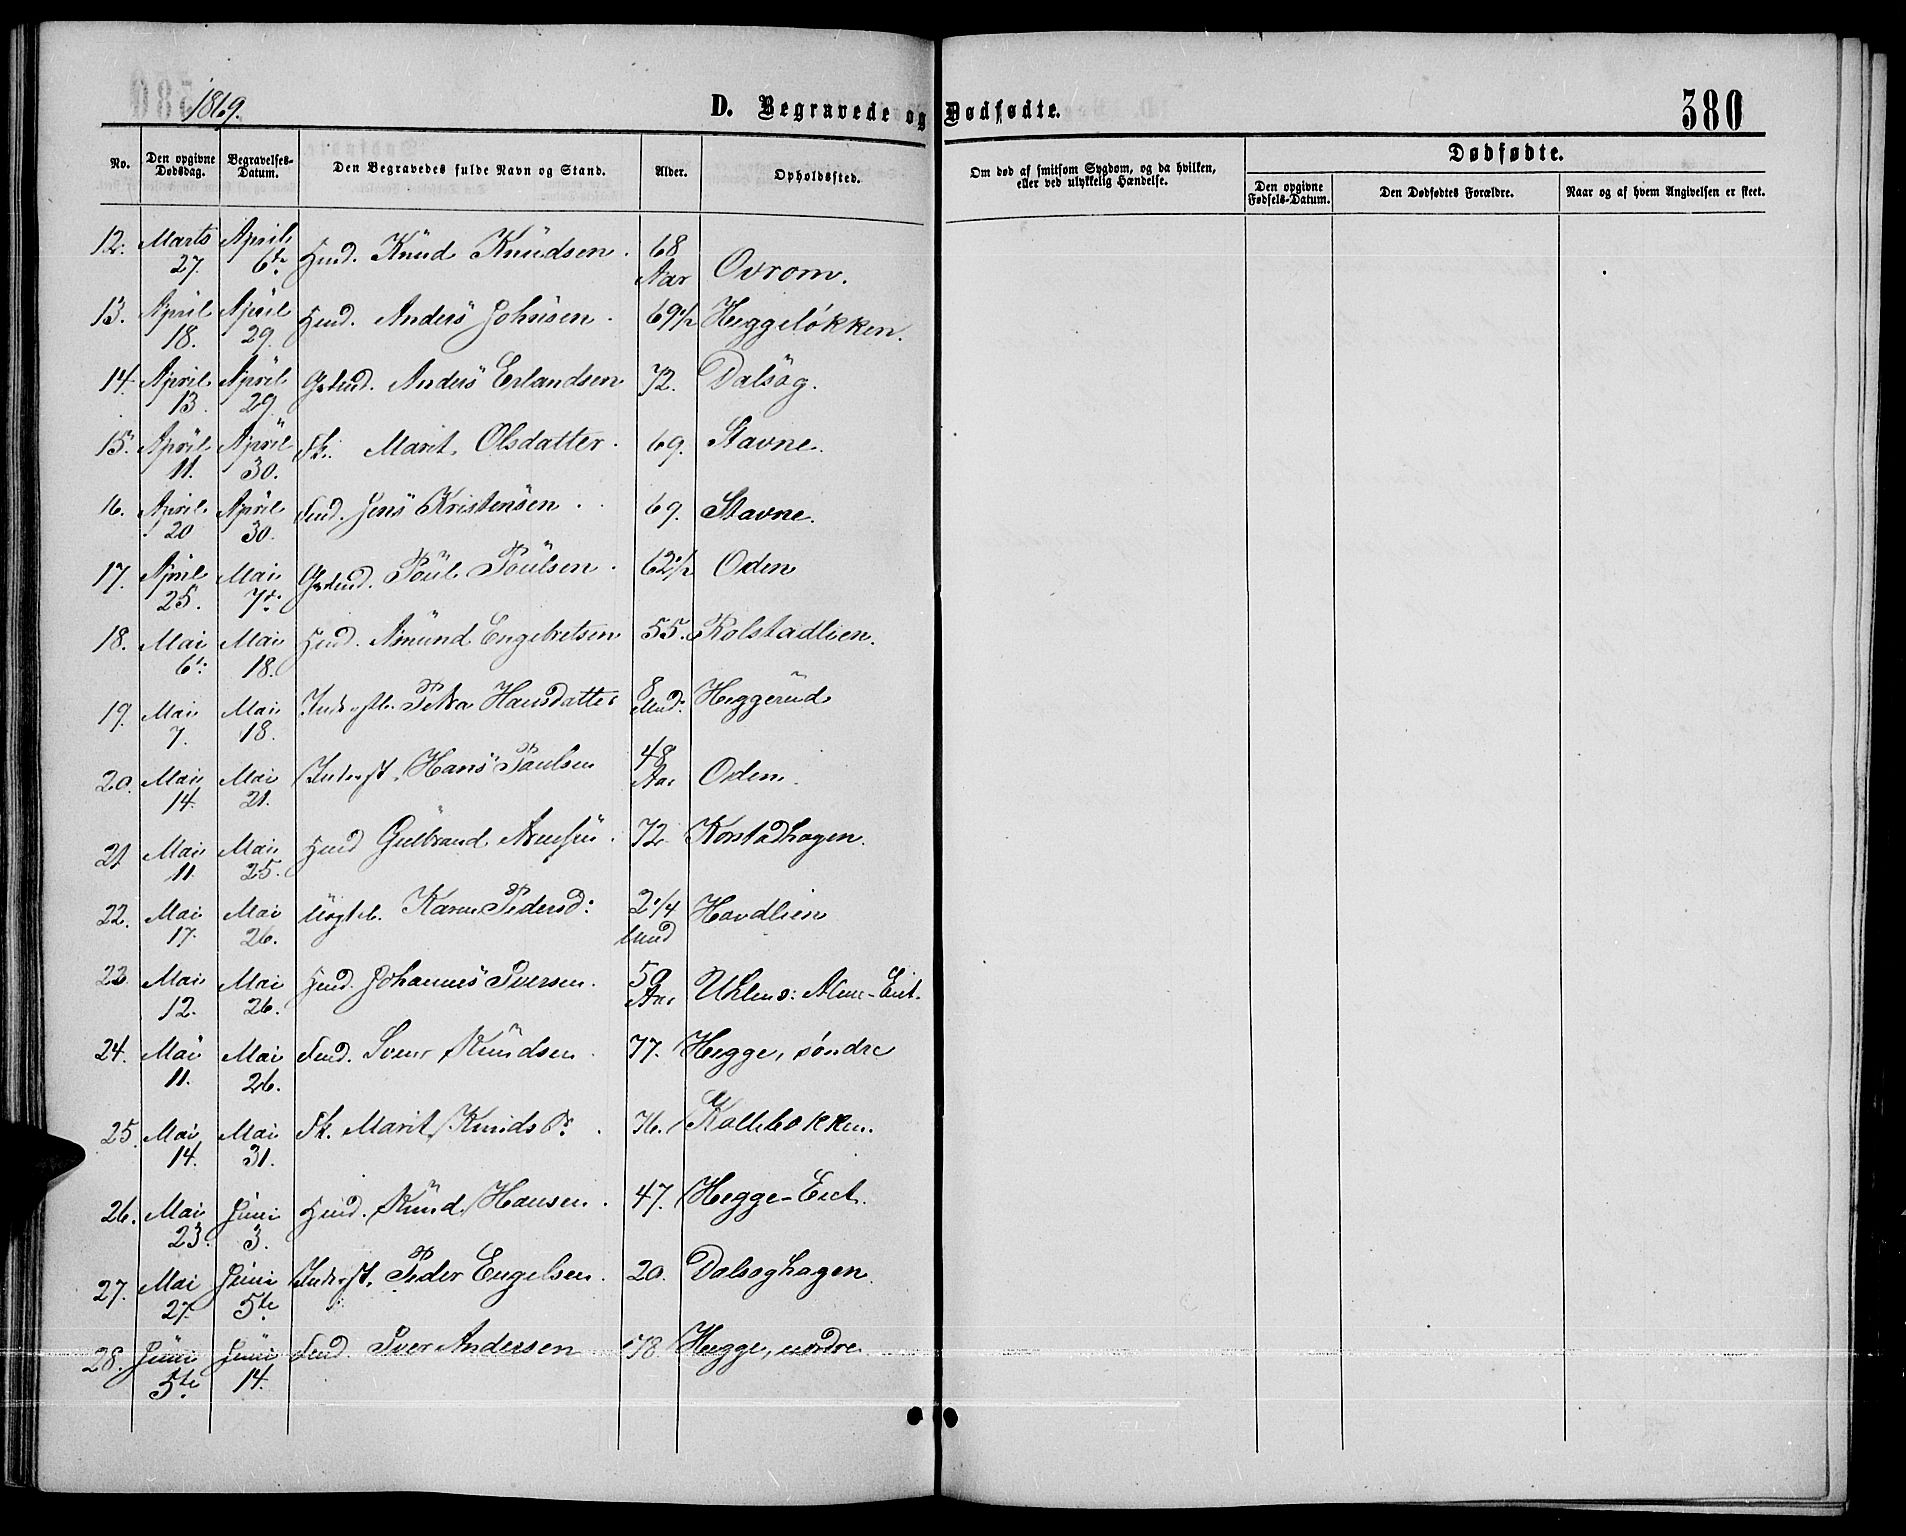 1869.
D. Begravede og Dødfødte.
380
No.
Den opgivne Dødsdag.
Begravelses-Datum.
Den Begravedes fulde Navn og Stand.
Alder.
Opholdssted.
Om død af smitsom Sygdom, og da hvilken, eller ved ulykkelig Hændelse.
Dødfødte.
Den opgivne Fødsels-Datum.
Den Dødfødtes Forældre.
Naar og af hvem Angivelsen er skeet.
12. Marts 27. April 6te Hmd. Knud Knudsen. 68 Aar Ovrom.
13. April 18. April 29. Hmd. Anders Johnsen. 69 1/2 Heggeløkken.
14. April 13. April 29. Anders Erlandsen 72. Dalsøg.
15. April 11. April 30. Fk. Marit Olsdatter. 69. Stavne.
16. April 20 April 30. Jens Kristensen 69. Stavne.
17. April 25. Mai 7de Poul Poulsen. 62 1/2 Oden
18. Mai 6te Mai 18. Hmd. Amund Engebretsen 55. Kolstadlien.
19. Mai 7. Mai 18. Petra Hansdatter 8 Mnd: Heggerud
20. Mai 14. Mai 21. Inderst. Hans Poulsen 48 Aar Oden.
21 Mai 11. Mai 25. Hmd Gulbrand 72 Korstadhagen.
22. Mai 17. Mai 26. Karen Pedersd: 2 1/4 Mnd Hovdlien
23 Mai 12. Mai 26. Hmd. Johannes Iversen. 50 Aar
24. Mai 11. Mai 26. Knudsen 77. Hegge, søndre
25. Mai 14. Mai 31. Fk. Marit Knudsdr. 76. Kollebokken.
26. Mai 23. Juni 3. Hmd. Knud Hansen. 47. Hegge-Eiet.
27. Mai 27. Juni 5te Inderst. Peder Engelsen. 20. Dalsøghagen.
28. Juni 5te Juni 14. Iver Andersen 78 Hegge, nordre.